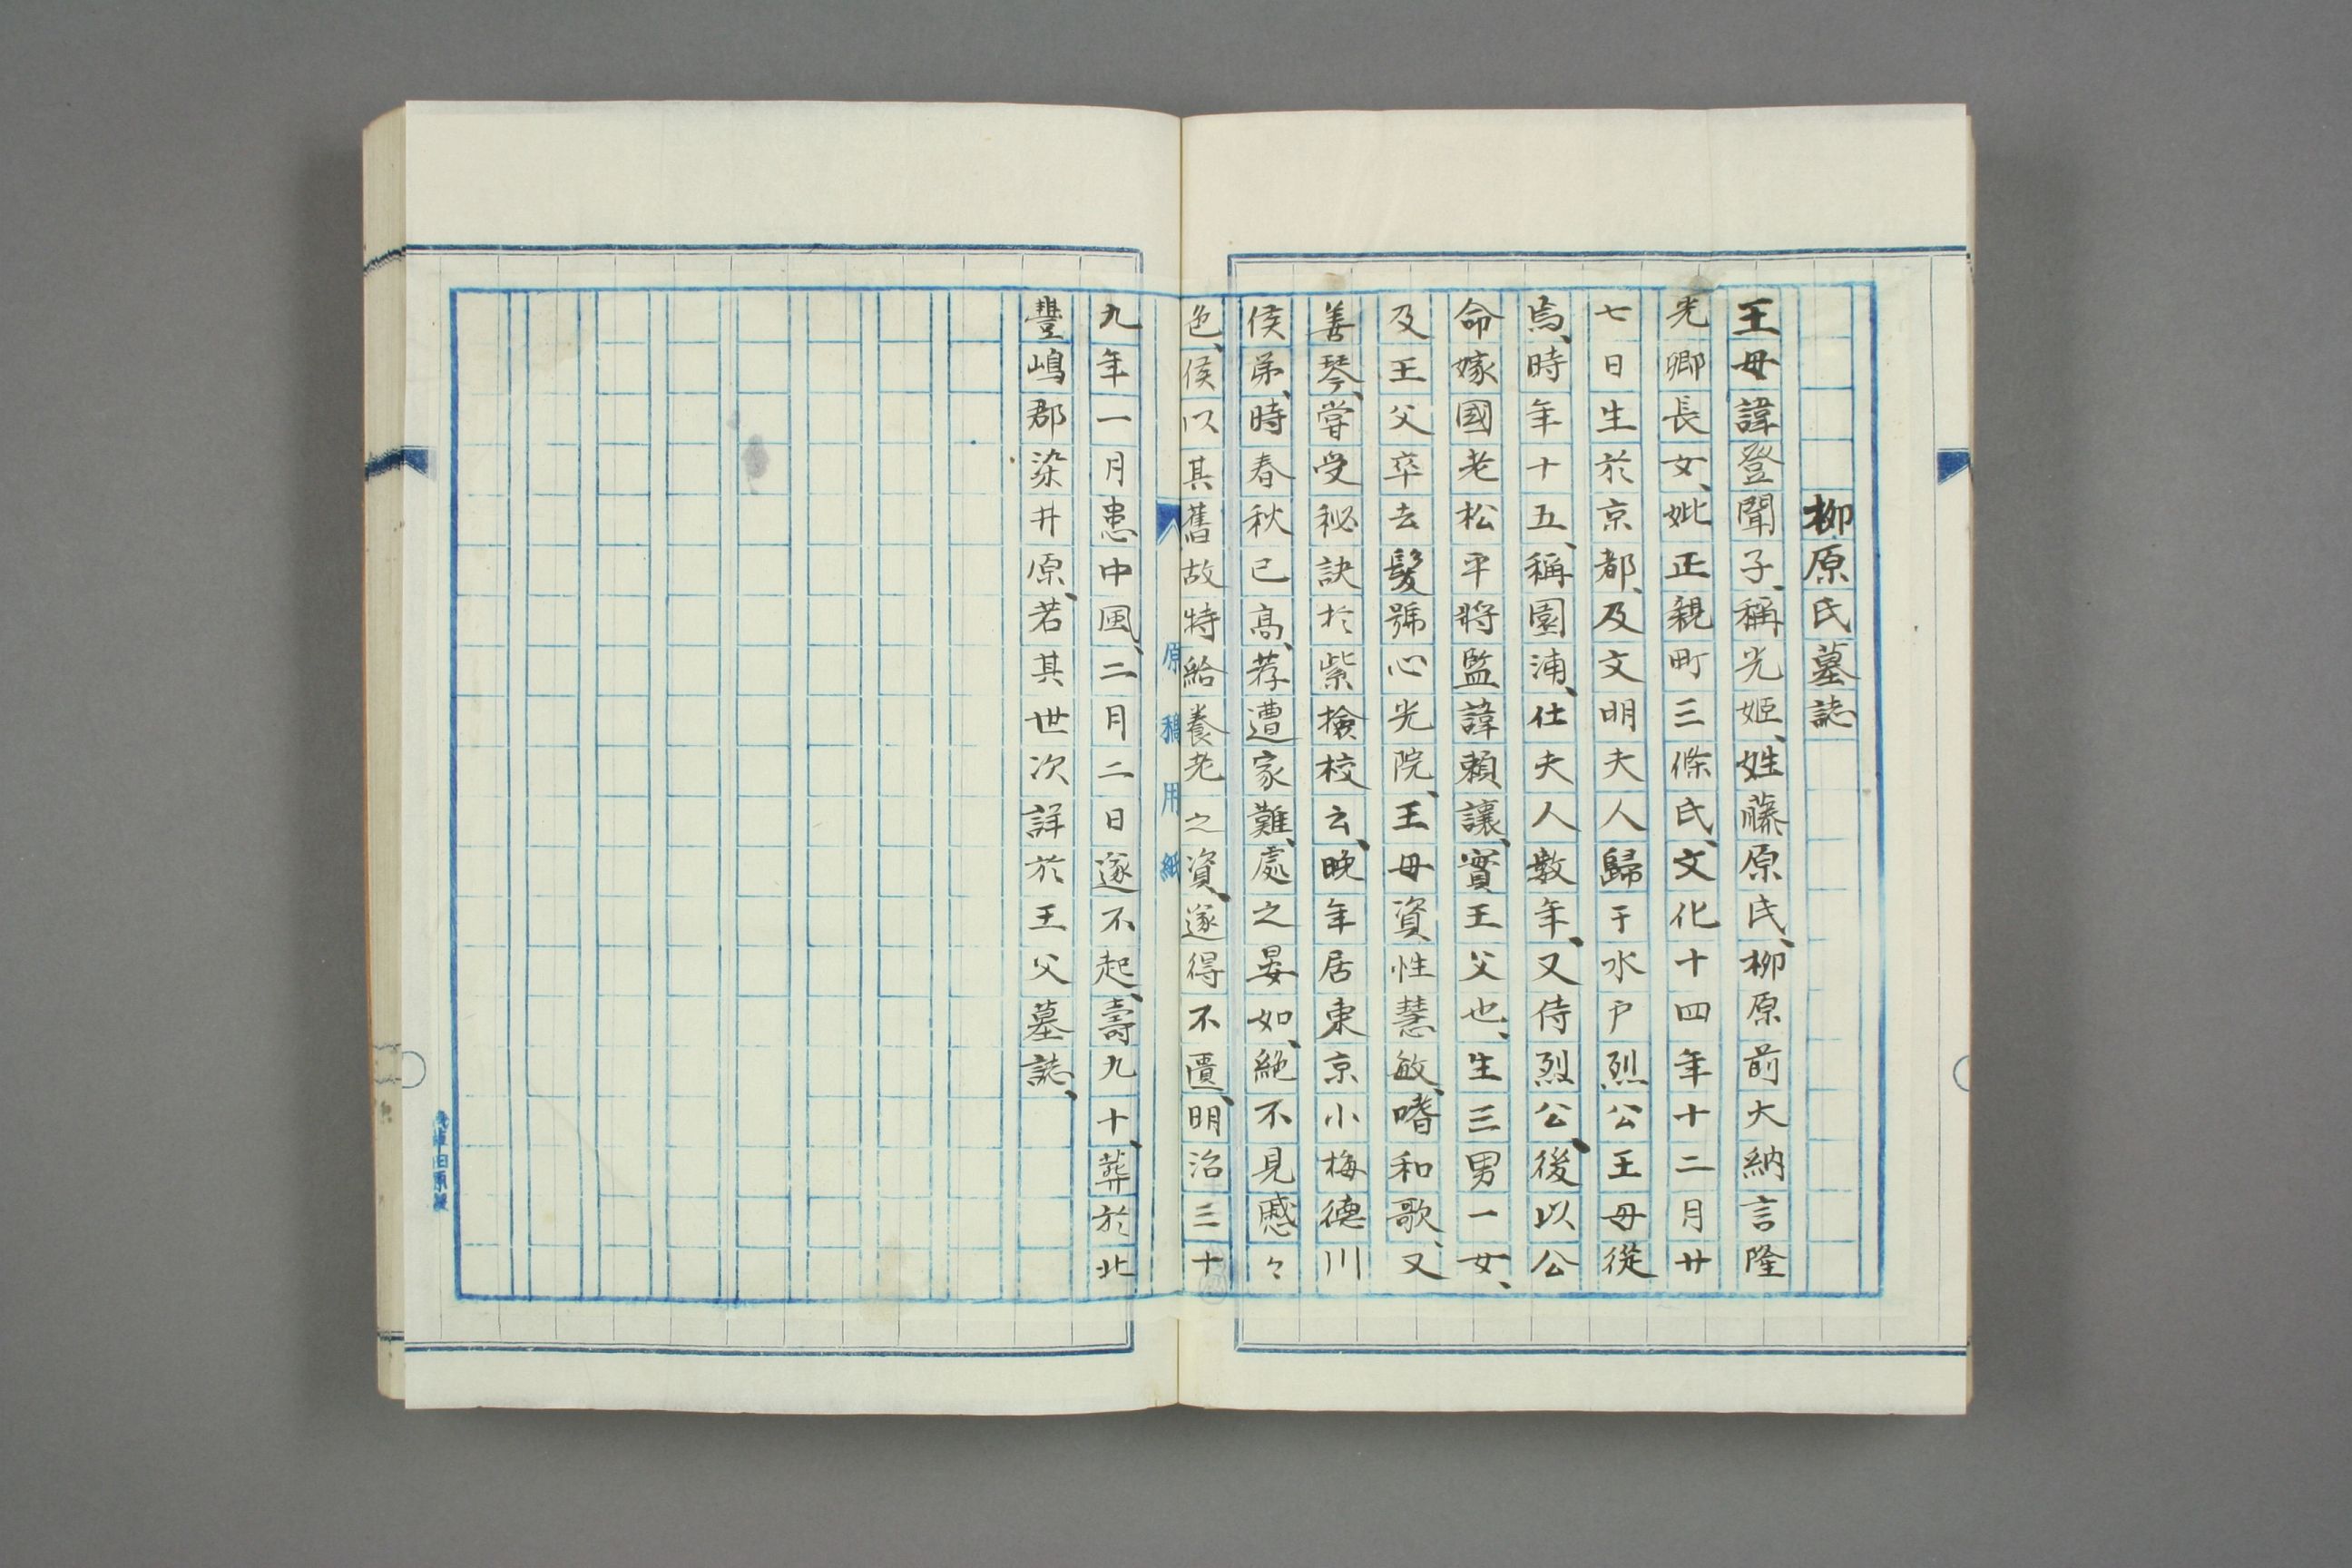 柳原氏墓誌
王母諱登聞子、稱光姬、姓藤原氏、柳原前大納言隆
光卿長女、妣正親町三條氏、文化十四年十二月廿
七日生於京都、及文明夫人歸于水戶烈公王母從
焉、時年十五、稱園浦、仕夫人數年、又侍烈公、後以公
命嫁國老松平將監諱賴讓、實王父也、生三男一女、
及王父卒去髮號心光院、王母資性慧敏、嗜和歌、又
善琴、嘗受秘訣於紫撿校云、晚年居東京小梅德川
侯弟、時春秋已高、荐遭家難、處之晏如、絕不見慼々
色、侯以其舊故特給養老之資、遂得不匱、明治三十
原稿用紙
九年一月患中風、二月二日遂不起、壽九十、葬於北
豐嶋郡染井原、若其世次詳於王父墓誌、